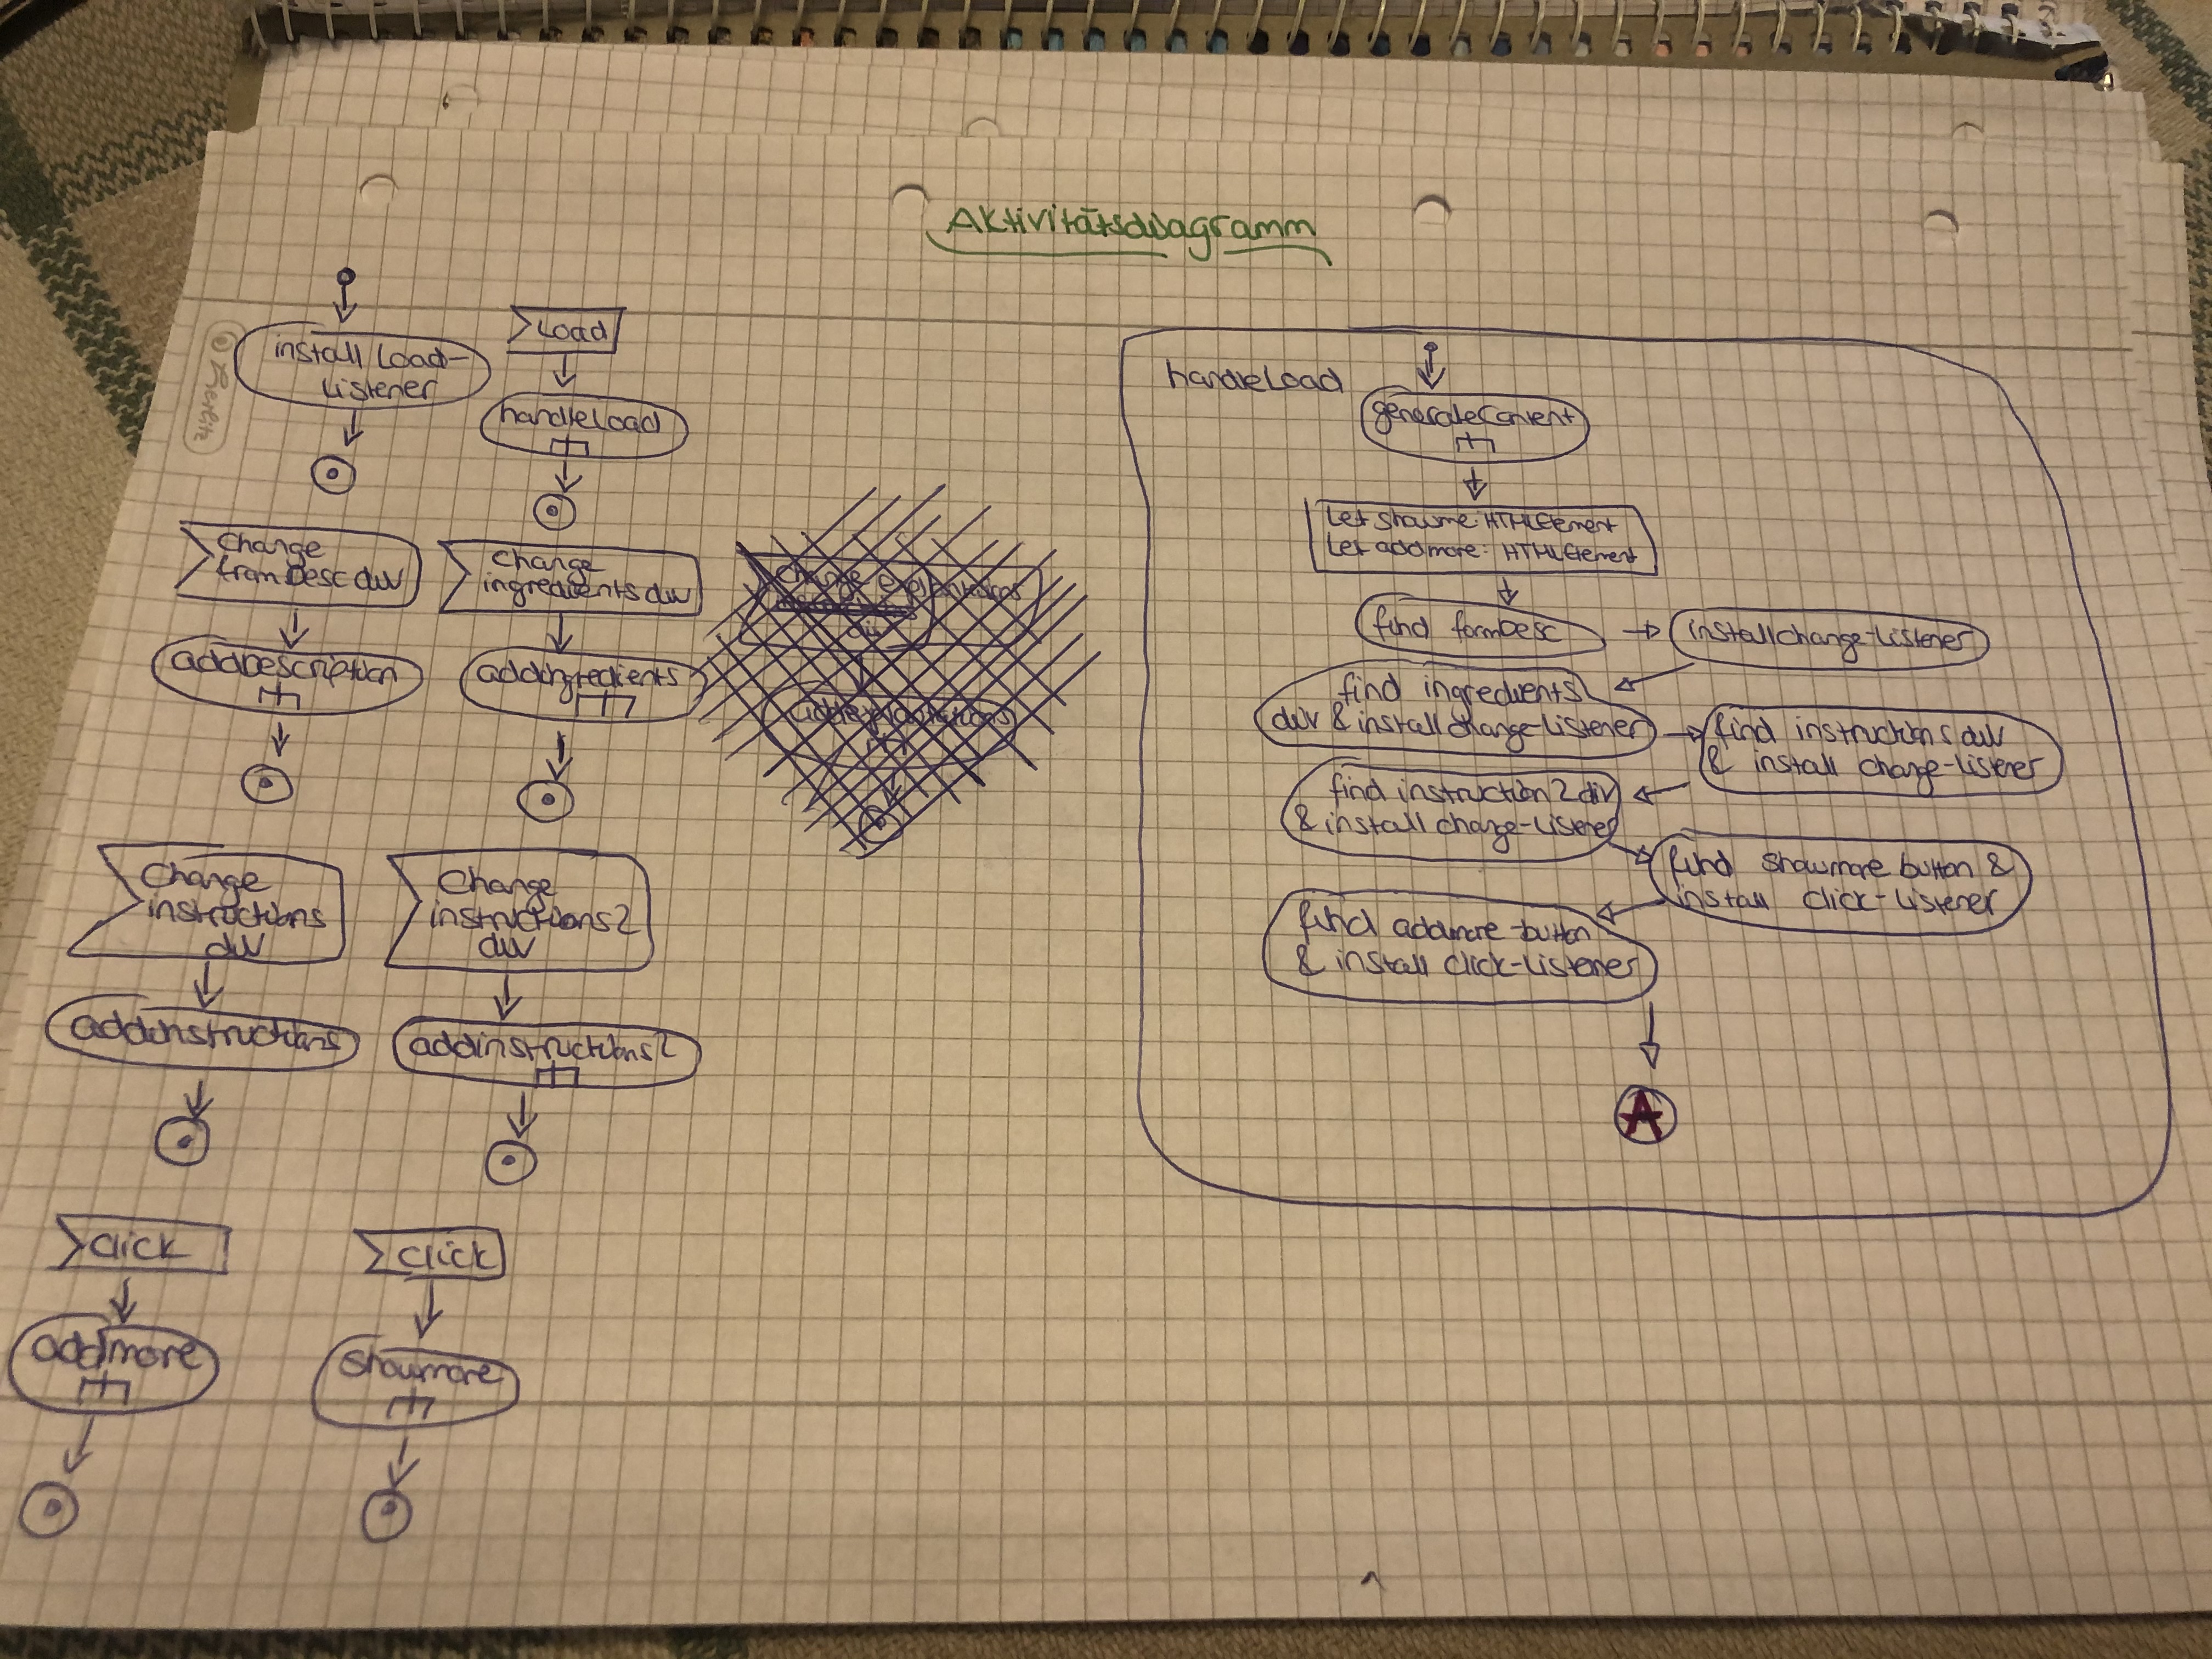 Aktivitätsdiagramm
install load-
Listener
Load
handleLoad
Change
fromDesc div
addDescription
Change
ingredients div
addIngredients
Change
instructions
div
addInstructions
Change
instructions2
div
addinstructions2
Click
addmore
Click
Showmore
handleLoad
generateContent
let addmore: HTMLElement
find formDesc
install change-Listener
find ingredients
div & install change-Listener
find instructions div
& install change-Listener
find instruction2 div
& install change-Listener
find showmore button &
install click-Listener
find addmore-button
& install click-Listener
A